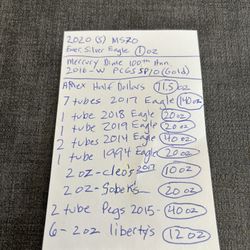 2020 (S) MS70
Emer Silver Eagle 1oz
Mercury Dime 100th Ann.
2016-W PCGS SP70 (Gold)
APMEX Half Dollars 11.5oz
7 tubes 2017 Eagle 140oz
1 tube 2018 Eagle 20oz
1 tube 2019 Eagle 20oz
2 tubes 2014 Eagle 40oz
1 tube 1994 Eagle 20oz
2oz-cleo's 2017 10oz
2oz-Sobeks 20oz
2 tube Pcgs 2015- 40oz
6- 2oz liberty's 12oz